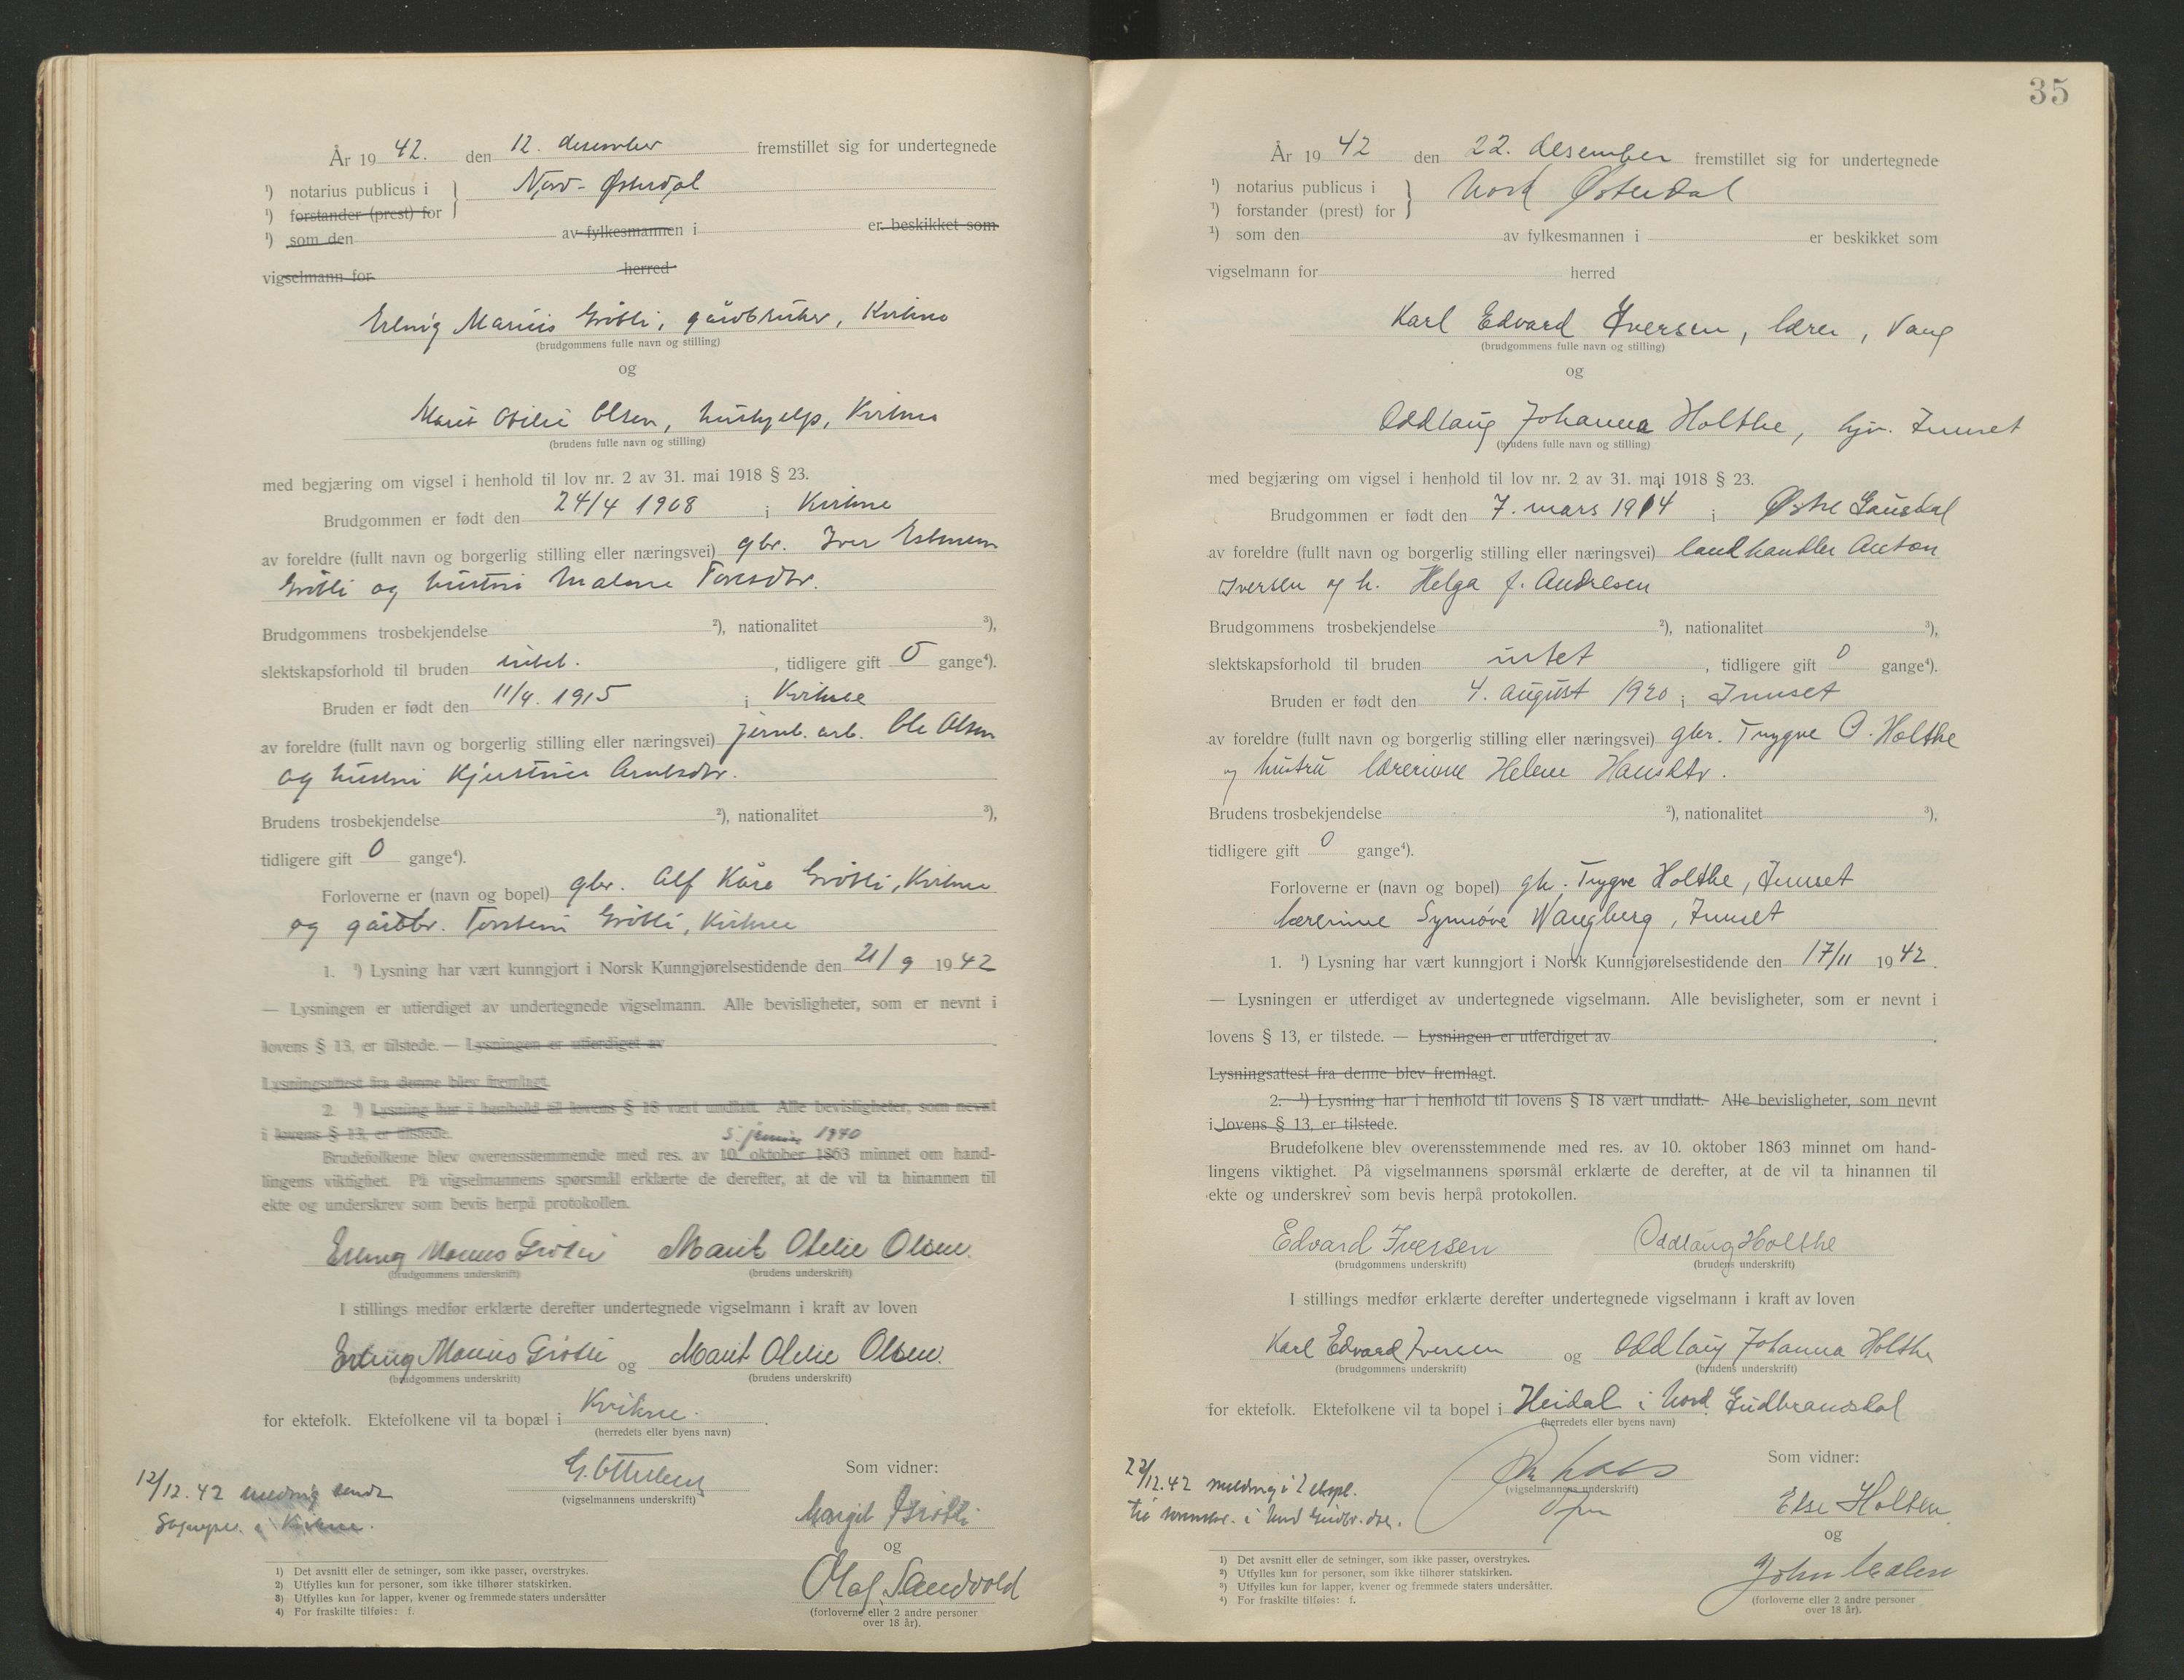 År 19 42. den 12. desember fremstillet sig for undertegnede
¹) notarius publicus i } Nord-Østerdal
¹) forstander (prest) for
¹) som den av fylkesmannen i er beskikket som
vigselmann for herred
Erling Marius Grötli, gårdbruker, Kvikne
(brudgommens fulle navn og stilling)
og
Marit Otelie Olsen, hushjelp, Kvikne
(brudens fulle navn og stilling)
med begjæring om vigsel i henhold til lov nr. 2 av 31. mai 1918 § 23.
Brudgommen er født den 24/4 1908 i Kvikne
av foreldre (fullt navn og borgerlig stilling eller næringsvei) gbr. Iver Estensen
Grötli og hustru Malene Toresdtr.
Brudgommens trosbekjendelse ²), nationalitet ³),
slektskapsforhold til bruden intet. , tidligere gift 0 gange⁴).
Bruden er født den 11/4. 1915 i Kvikne
av foreldre (fullt navn og borgerlig stilling eller næringsvei) jernb. arb. Ole Olsen
og hustru Kjerstine Arntsdtr.
Brudens trosbekjendelse ²), nationalitet ³),
tidligere gift 0 gange⁴).
Forloverne er (navn og bopel) gbr. Alf Kåre Grötli, Kvikne
og gårdbr. Torstein Grötli, Kvikne
1. ¹) Lysning har vært kunngjort i Norsk Kunngjørelsestidende den 21/9 19 42
— Lysningen er utferdiget av undertegnede vigselmann. Alle bevisligheter, som er nevnt i
lovens § 13, er tilstede. — Lysningen er utferdiget av .
Lysningsattest fra denne blev fremlagt.
2. ¹) Lysning har i henhold til lovens § 18 vært undlatt. Alle bevisligheter, som nevnt
i lovens § 13, er tilstede.
5. januar 1940
Brudefolkene blev overensstemmende med res. av 10. oktober 1863 minnet om hand-
lingens viktighet. På vigselmannens spørsmål erklærte de derefter, at de vil ta hinannen til
ekte og underskrev som bevis herpå protokollen.
Erling Marius Grötli Marit Otelie Olsen.
(brudgommens underskrift) (brudens underskrift)
I stillings medfør erklærte derefter undertegnede vigselmann i kraft av loven
Erling Marius Grötli og Marit Otelie Olsen.
(brudgommens underskrift) (brudens underskrift)
for ektefolk. Ektefolkene vil ta bopæl i Kvikne.
(herredets eller byens navn)
Som vidner:
(vigselmannens underskrift)
12/12. 42 melding sendt
Sogneprs. i Kvikne.
Margit Grötli
og
Olaf Sandvold
(forloverne eller 2 andre personer
over 18 år).
1) Det avsnitt eller de setninger, som ikke passer, overstrykes.
2) Utfylles kun for personer, som ikke tilhører statskirken.
3) Utfylles kun for lapper, kvener og fremmede staters undersåtter
4) For fraskilte tilføies: f.
35
År 19 42 den 22. desember fremstillet sig for undertegnede
¹) notarius publicus i } Nord Østerdal
¹) forstander (prest) for
¹) som den av fylkesmannen i er beskikket som
vigselmann for herred
Karl Edvard Iversen, lærer, Vang
(brudgommens fulle navn og stilling)
og
Oddlaug Johanna Holthe, hjv. Tynset
(brudens fulle navn og stilling)
med begjæring om vigsel i henhold til lov nr. 2 av 31. mai 1918 § 23.
Brudgommen er født den 7. mars 1914 i Østre Gausdal
av foreldre (fullt navn og borgerlig stilling eller næringsvei) landhandler Anton
Iversen og h. Helga f. Andresen
Brudgommens trosbekjendelse ²), nationalitet ³),
slektskapsforhold til bruden intet , tidligere gift 0 gange⁴).
Bruden er født den 4. august 1920 i Tynset
av foreldre (fullt navn og borgerlig stilling eller næringsvei) gbr. Trygve O. Holthe
og hustru lærerinne Helene Hansdtr.
Brudens trosbekjendelse ²), nationalitet ³),
tidligere gift 0 gange⁴).
Forloverne er (navn og bopel) gbr. Trygve Holthe, Tynset
lærerinne Synnöve Wangberg, Tynset
1. ¹) Lysning har vært kunngjort i Norsk Kunngjørelsestidende den 17/11 19 42.
— Lysningen er utferdiget av undertegnede vigselmann. Alle bevisligheter, som er nevnt i
lovens § 13, er tilstede. — Lysningen er utferdiget av .
Lysningsattest fra denne blev fremlagt.
2. ¹) Lysning har i henhold til lovens § 18 vært undlatt. Alle bevisligheter, som nevnt
i lovens § 13, er tilstede.
Brudefolkene blev overensstemmende med res. av 10. oktober 1863 minnet om hand-
lingens viktighet. På vigselmannens spørsmål erklærte de derefter, at de vil ta hinannen til
ekte og underskrev som bevis herpå protokollen.
Edvard Iversen Oddlaug Holthe
(brudgommens underskrift) (brudens underskrift)
I stillings medfør erklærte derefter undertegnede vigselmann i kraft av loven
Karl Edvard Iversen og Oddlaug Johanna Holthe
(brudgommens underskrift) (brudens underskrift)
for ektefolk. Ektefolkene vil ta bopel i Heidal i Nord Gudbrandsdal
(herredets eller byens navn)
Som vidner:
(vigselmannens underskrift)
22/12. 42 melding i 2 ekspl.
til sorenskr. i Nord Gudbr. dal.
Else Holten
og
John
(forloverne eller 2 andre personer
over 18 år).
¹) Det avsnitt eller de setninger, som ikke passer, overstrykes.
²) Utfylles kun for personer, som ikke tilhører statskirken.
³) Utfylles kun for lapper, kvener og fremmede staters undersåtter.
⁴) For fraskilte tilføies: f.